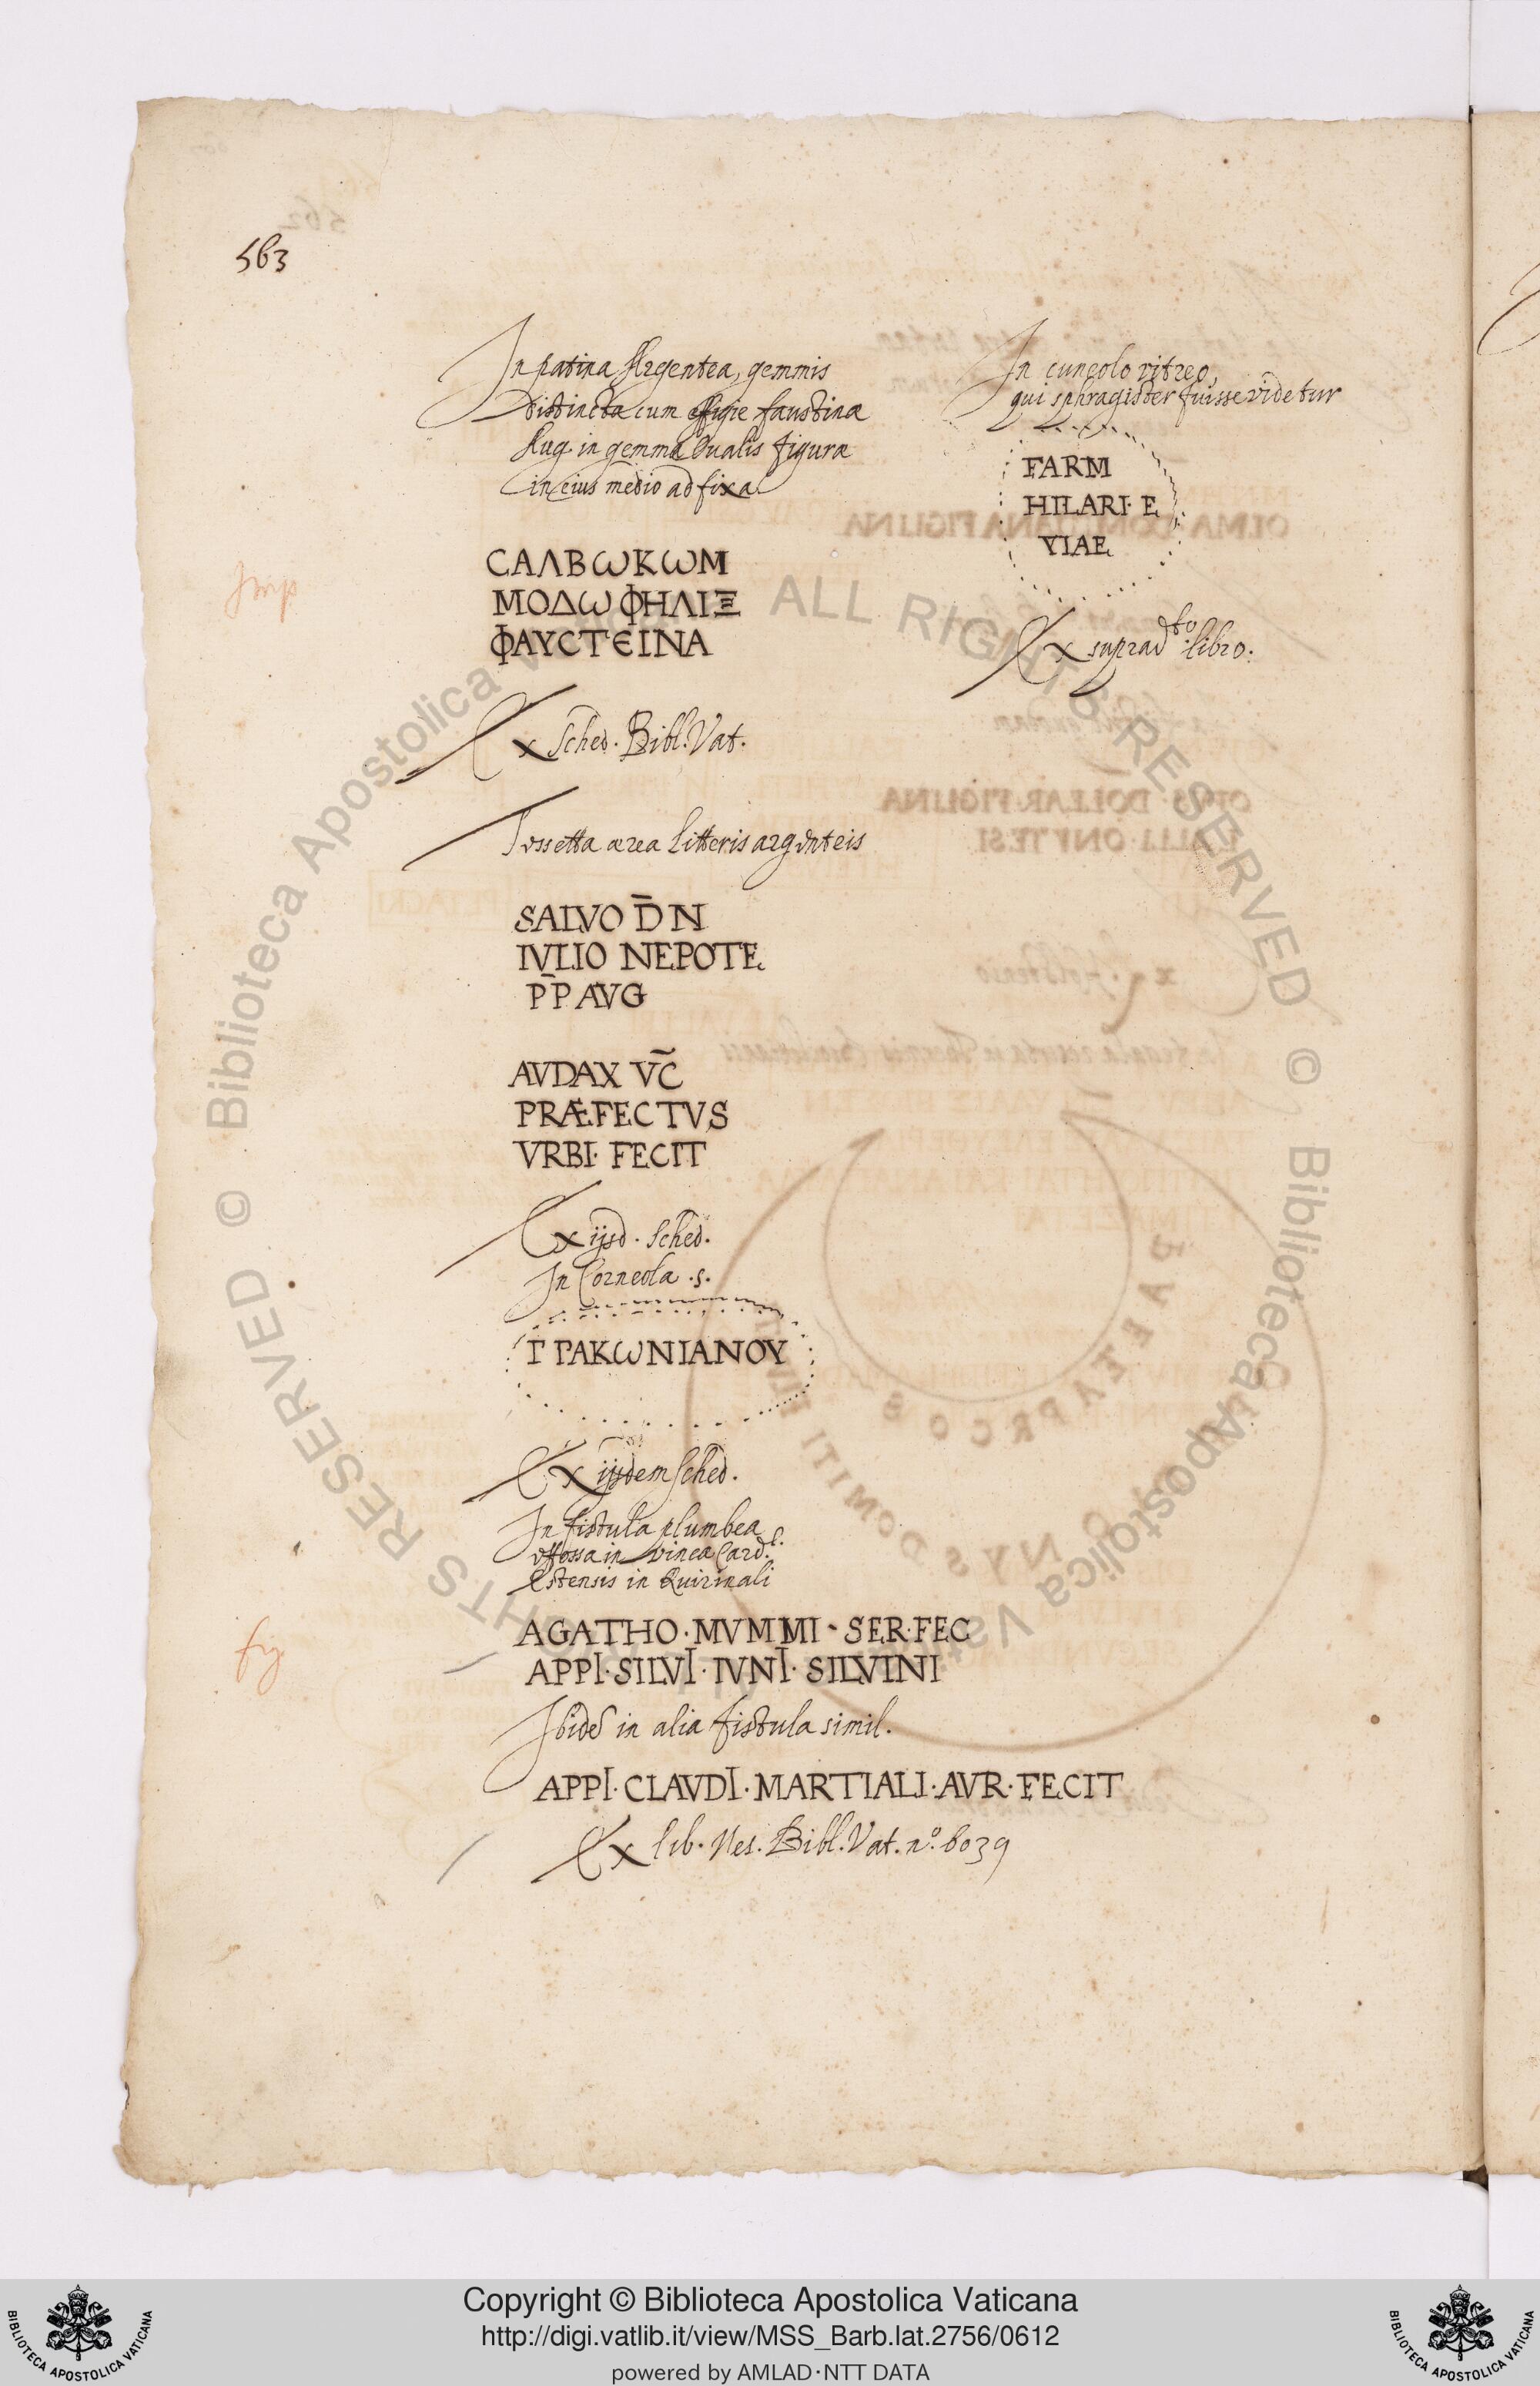 563
In patina Argentea, gemmis
Distincta cum effigie faustinæ
Aug. in gemma Oualis figuræ
in eius medio adfixa.
Imp
CΑΛΒωΚωΜ
ΜΟΔωΦΗΛΙΞ
ΦΑΥCΤЄΙΝΑ
Ex Sched. Bibl. Vat.
Tossetta ærea litteris argenteis
SALVO D̄ N
IVLIO NEPOTE
P̄P AVG
AVDAX VC̄
PRÆFECTVS
VRBI· FECIT
Ex ijsd. Sched.
In Corneola .s.
Γ ΓΑΚωΝΙΑΝΟΥ
Ex ijsdem Sched.
In fistula plumbea
effossa in vinea Card.l.
Estensis in Quirinali
fig
AGATHO·MVMMI·SER·FEC
APPI·SILVI·IVNI·SILVINI
Ibidē in alia fistula simil.
APPI·CLAVDI·MARTIALI·AVR·FECIT
Ex lib. Nes. Bibl. Vat. nº. 6039
In cuneolo vitreo,
qui sphragister fuisse videtur
FARM
HILARI· E
VIAE
Ex suprad.to libro.
Copyright © Biblioteca Apostolica Vaticana
http://digi.vatlib.it/view/MSS_Barb.lat.2756/0612
powered by AMLAD·NTT DATA
BIBLIOTECA APOSTOLICA VATICANA
BIBLIOTECA APOSTOLICA VATICANA